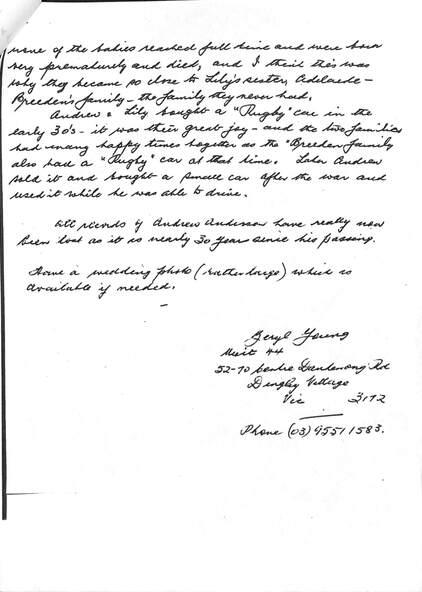 none of the babies reached full time and were born
very prematurely and died, and I think this was
why they became so close to Lily's sister, Adelaide –
Breeden's family – the family they never had.
Andrew & Lily bought a "Rugby" car in the
early 30's – it was their great joy – and the two families
had many happy times together as the Breeden family
also had a "Rugby" car at that time. Later Andrew
sold it and bought a small car after the war and
used it while he was able to drive.
All records of Andrew Anderson have really now
been lost as it is nearly 30 years since his passing.
Have a wedding photo (rather large) which is
available if needed.
–
Beryl Young
Unit 44
52-70 Centre Dandenong Rd
Dingley Village
Vic 3172
Phone (03) 95511583.